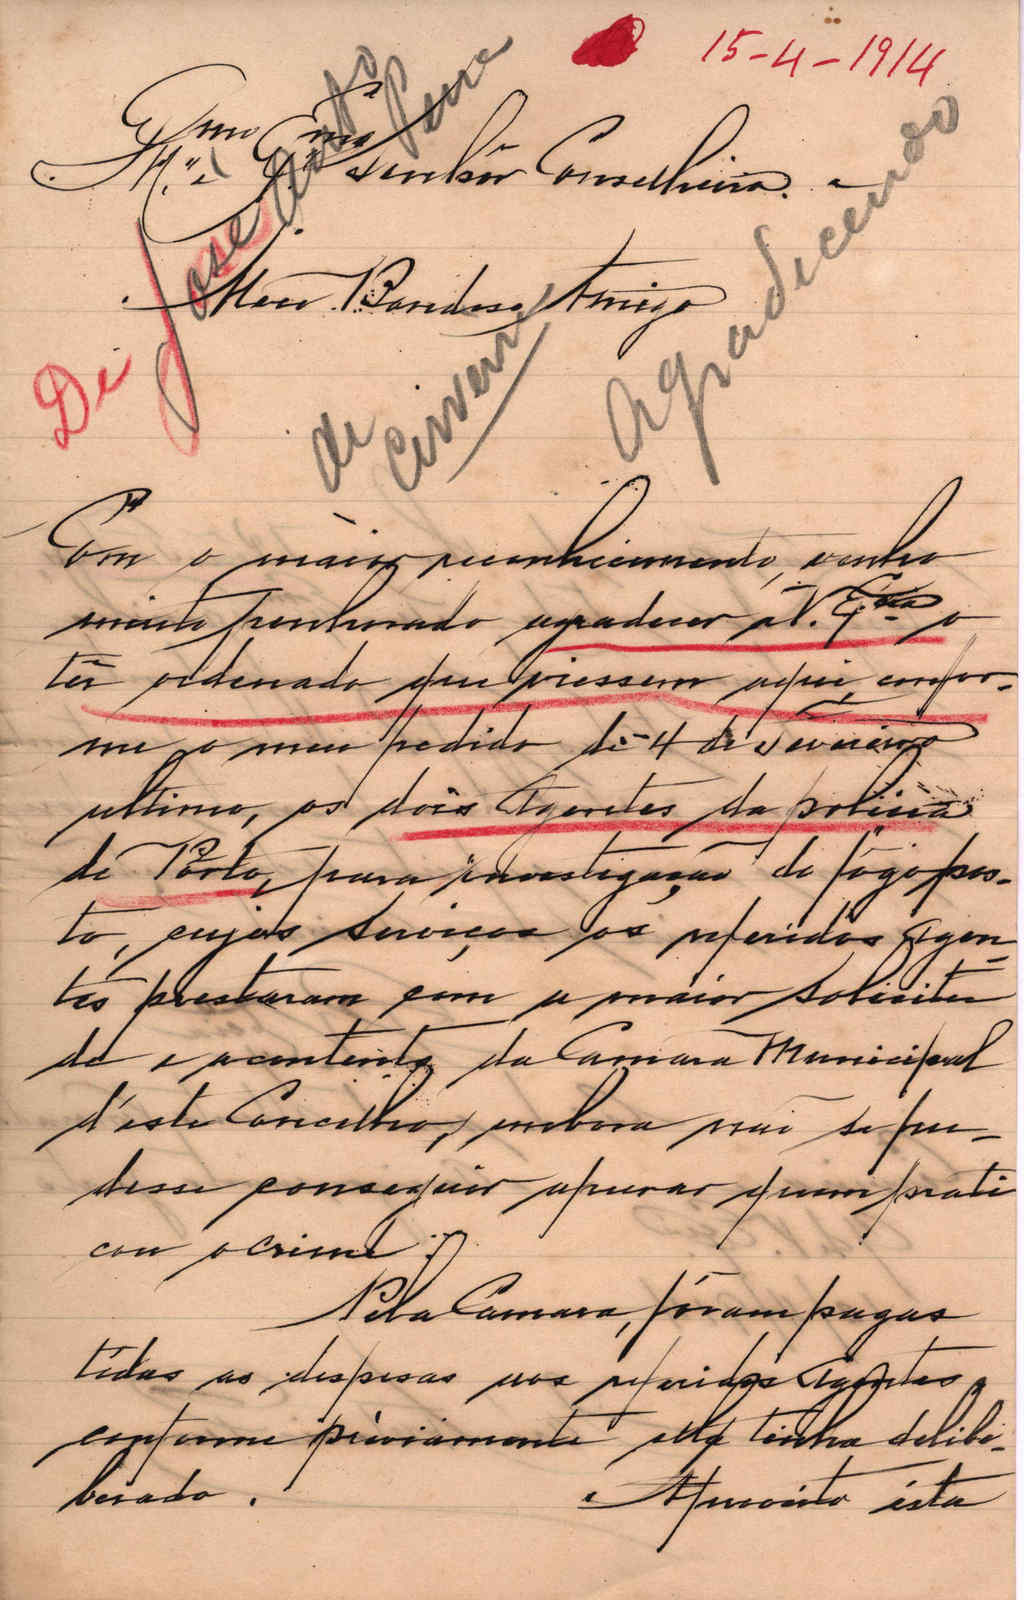 15-4-1914
Exmo
Senhor Conselheiro.
Meu Bondoso Amigo
De José
de
Agradecendo
Com o maior reconhecimento, venho
muito penhorado agradecer a V. Exa o
têr ordenado que viessem aqui, confor-
me o meu pedido de 4 de Fevereiro
ultimo, os dois Agentes da policia
do Porto, para investigação do fôgo pos-
to, cujos serviços os referidos Agen-
tes prestaram com a maior solicitu
de e a contento da Camara Municipal
d'este Concelho, embora não se pu-
desse conseguir apurar quem prati
cou o crime.
Pela Camara, fôram pagas
tôdas as despesas aos referidos Agentes,
conforme préviamente ella tinha delibe-
berado.
Aproveito ésta